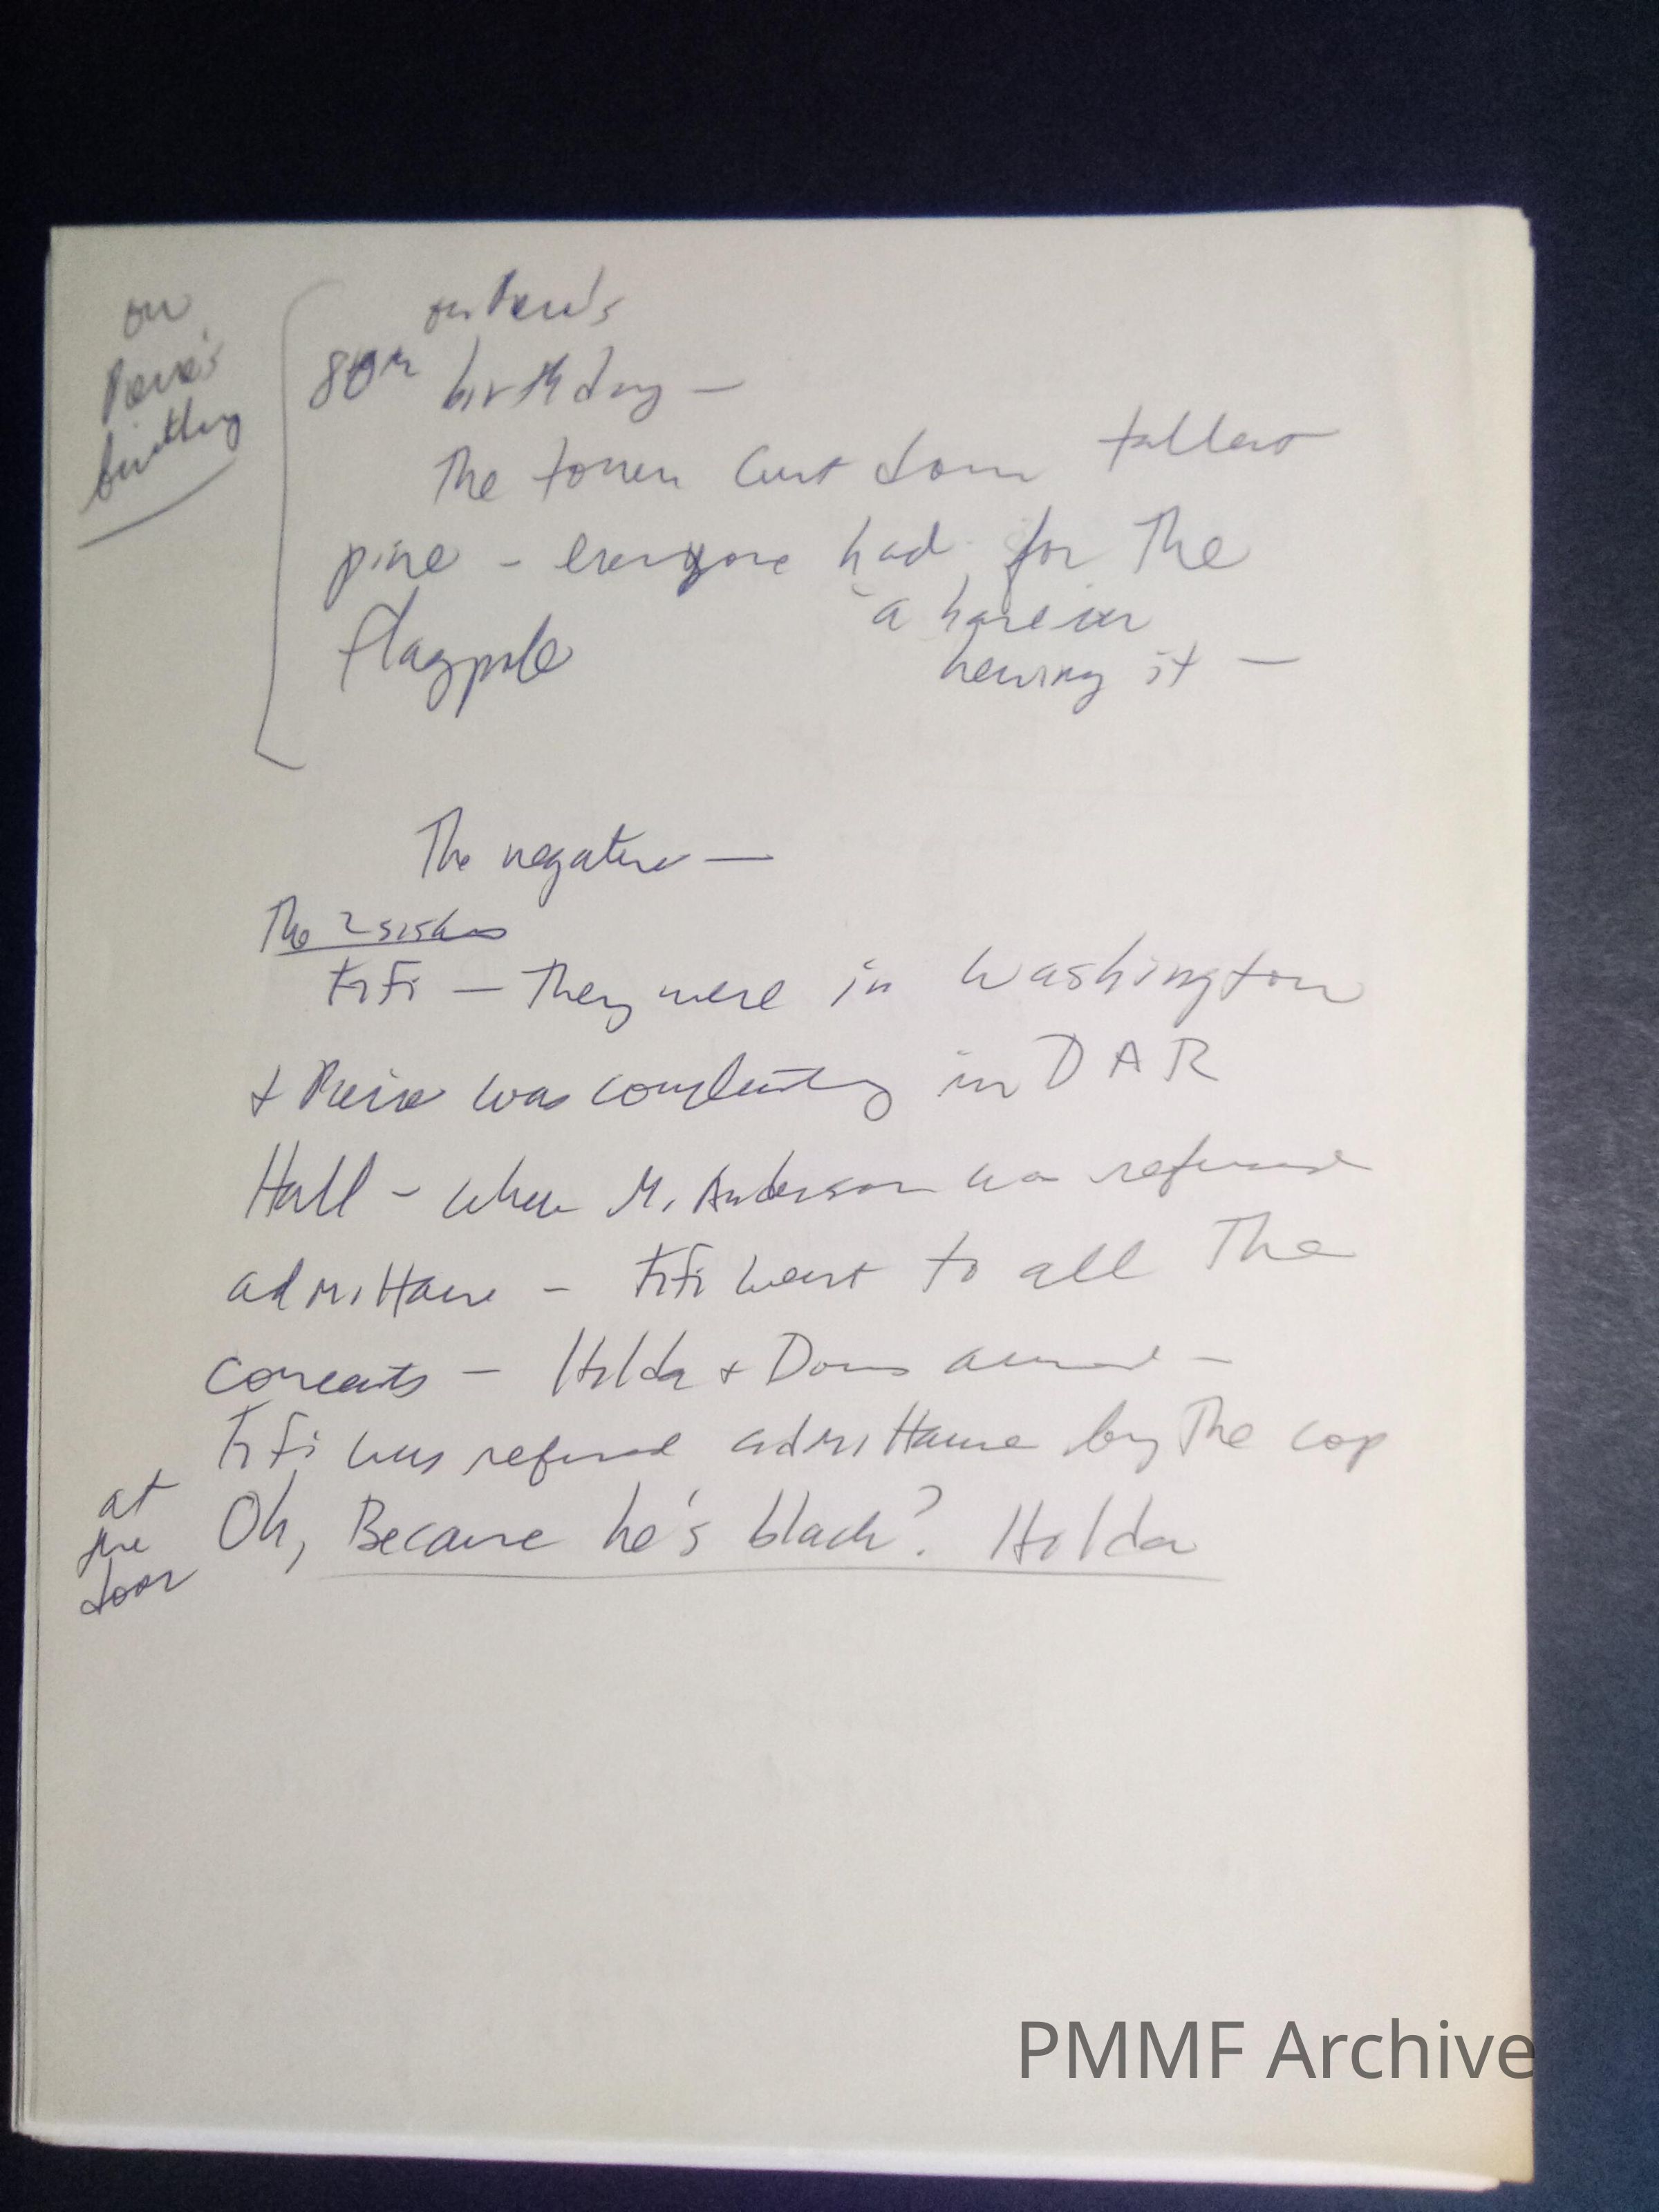 on
Pierre's
birthday
on Pierre's
80th birthday —
The town cut down tallest
pine - everyone had for the
a hand in
hewing it —
flagpole
The negative —
The 2 sisters
FiFi — They were in Washington
& Pierre was conducting in DAR
Hall - where M. Anderson was refused
admittance - FiFi went to all the
concerts — Hilda & Doris arrived -
FiFi was refused admittance by the cop
at
the
door
Oh, Because he's black? Hilda
PMMF Archive